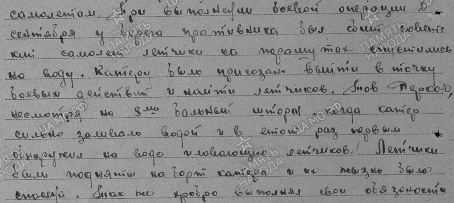 самолетом. При выполнении боевой операции
сентября у берега противника был сбит советс
кий самолет летчики на парашутах спустились
на воду. Катеру было приказано выйти в точку
боевых действий и найти летчиков. Тов
несмотря на 8ми бальный шторм когда катер
сильно заливало водой и в этот раз первым
обнаружил на воде плавающих летчиков. Летчики
были подняты на борт катера и их жизнь была
спасена. Так же храбро выполнял свои обязаности